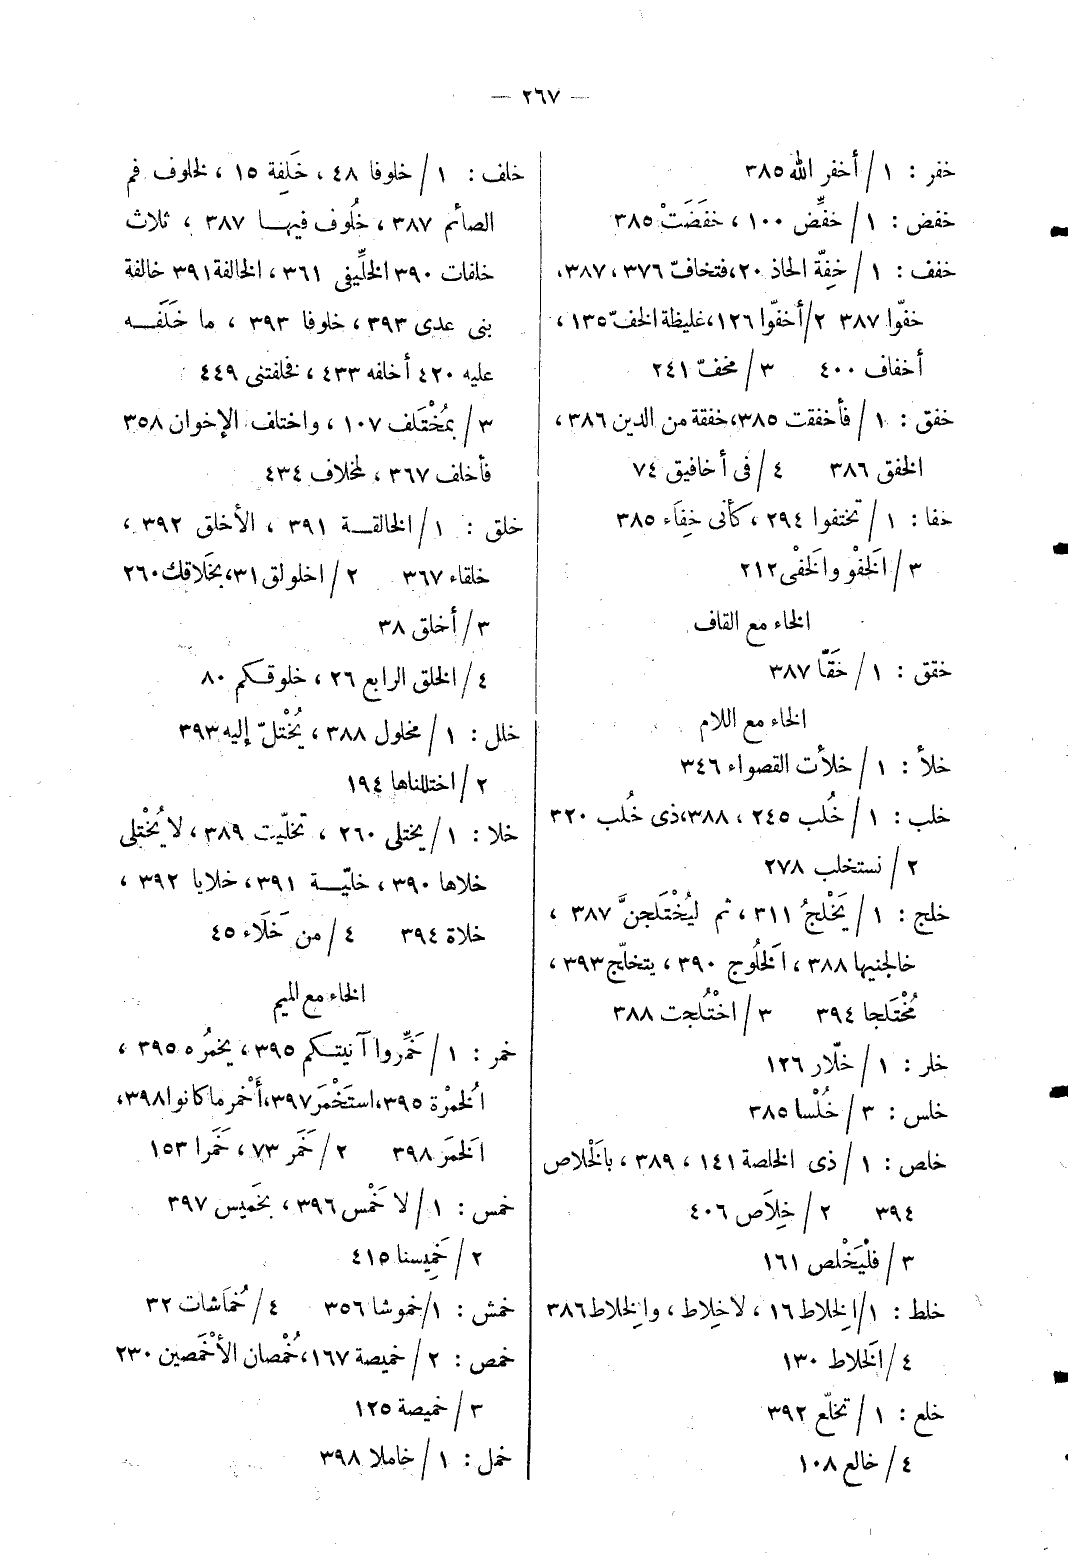 — ٢٦٧ —
خفر : ١ / أخفر الله ٣٨٥
خفض : ١ / خفِّض ١٠٠ ، خفَضَتْ ٣٨٥
خفف : ١ / خفِةّ الحاذ ٢٠،فتخافّ ٣٧٦ ، ٣٨٧،
خفّوا ٣٨٧ ٢/أخفّوا ١٢٦،غليظة الخفّ ١٣٥ ،
أخفاف ٤٠٠ ٣ / مخفّ ٢٤١
خفق : ١ / فأخفقت ٣٨٥،خفقة من الدين ٣٨٦ ،
الخفق ٣٨٦ ٤ / فى أخافيق ٧٤
خفا : ١ / تختفوا ٢٩٤ ، كأنى خِفَاء ٣٨٥
٣ / الَخفْو والَخفْى ٢١٢
الخاء مع القاف
خقق : ١ / خَقًّا ٣٨٧
الخاء مع اللام
خلأ : ١ / خلأت القصواء ٣٤٦
خلب : ١ / خُلب ٢٤٥ ، ٣٨٨،ذى خُلب ٣٢٠
٢ / نستخلب ٢٧٨
خلج : ١ / يَخْلجُ ٣١١ ، ثم ليُخْتَلَجنَّ ٣٨٧ ،
خالجنيها ٣٨٨ ، الَخلُوج ٣٩٠ ، يتخلّج ٣٩٣ ،
مُخْتَلجا ٣٩٤ ٣ / اخْتُلجت ٣٨٨
خلر : ١ / خلّار ١٢٦
خلس : ٣ / خُلْسا ٣٨٥
خلص : ١ / ذى الخلصة ١٤١ ، ٣٨٩ ، بالَخْلاص
٣٩٤ ٢ / خِلَاص ٤٠٦
٣ / فلْيَخْلص ١٦١
خلط : ١ /الِخلاط ١٦ ، لاخِلاط ، والِخلاط ٣٨٦
٤ / الَخلاط ١٣٠
خلع : ١ / تخلّع ٣٩٢
٤ / خالع ١٠٨
خلف : ١ / خلوفا ٤٨ ، خَلِفة ١٥ ، لخلوف فم
الصائم ٣٨٧ ، خُلوف فيهـا ٣٨٧ ، ثلاث
خلفات ٣٩٠ الخلِّيفى ٣٦١ ، الخالفة ٣٩١ خالفة
بنى عدى ٣٩٣ ، خلوفا ٣٩٣ ، ما خَلَفَـه
عليه ٤٢٠ أخلفه ٤٣٣ ، فخلفتنى ٤٤٩
٣ / بمُخْتَلف ١٠٧ ، واختلف الإخوان ٣٥٨
فأخلف ٣٦٧ ، لمخلاف ٤٣٤
خلق : ١ / الخالقـة ٣٩١ ، الأخلق ٣٩٢ ،
خلقاء ٣٦٧ ٢ / اخلولق ٣١،بخَلاقك ٢٦٠
٣ / أخلق ٣٨
٤ / الخلق الرابع ٢٦ ، خلوقـكم ٨٠
خلل : ١ / مخلول ٣٨٨ ، يُخْتلّ إليه ٣٩٣
٢ / اختللناها ١٩٤
خلا : ١ / يختلى ٢٦٠ ، تخلّيت ٣٨٩ ، لا يُخْتلى
خلاها ٣٩٠ ، خليّـة ٣٩١ ، خلايا ٣٩٢ ،
خلاة ٣٩٤ ٤ / من خَلَاء ٤٥
الخاء مع الميم
خمر : ١ / خَمِّروا آنيتـكم ٣٩٥ ، يخمرُه ٣٩٥ ،
الُخمْرة ٣٩٥،استَخْمَر ٣٩٧،أَخْمر ماكانوا ٣٩٨،
الَخمَر ٣٩٨ ٢ / خَمَر ٧٣ ، خَمَرا ١٥٣
خمس : ١ / لا خَمْس ٣٩٦ ، بخَميس ٣٩٧
٢ / خَمِيسنا ٤١٥
خمش : ١ /خموشا ٣٥٦ ٤ / خُمَاشات ٣٢
خمص : ٢ / خميصة ١٦٧،خُمْصان الأخْمَصين ٢٣٠
٣ / خميصة ١٢٥
خمل : ١ / خاملا ٣٩٨